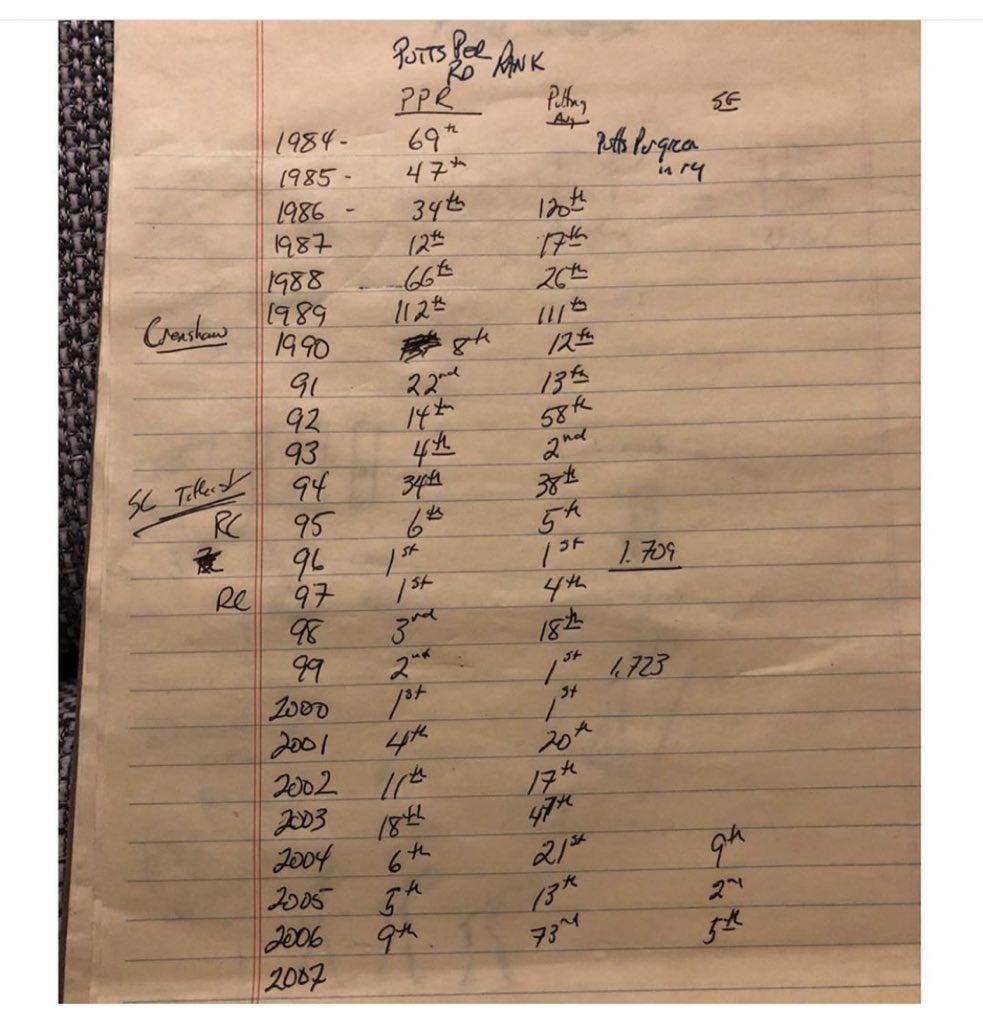 PUTTS PER RD RANK
PPR Putting Avg SG
1984 - 69th Putts Per green
1985 - 47th in reg
1986 - 34th 120th
1987 12th 17th
1988 66th 26th
1989 112th 111th
Crenshaw 1990 8th 12th
91 22nd 13th
92 14th 58th
93 4th 2nd
SC 94 34th 38th
RC 95 6th 5th
96 1st 1st 1.709
RC 97 1st 4th
98 3rd 18th
99 2nd 1st 1.723
2000 1st 1st
2001 4th 20th
2002 11th 17th
2003 18th 47th
2004 6th 21st 9th
2005 5th 13th 2nd
2006 9th 73rd 5th
2007